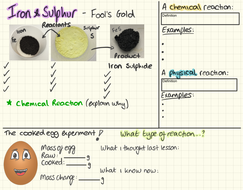 Iron & Sulphur - Fool's Gold
Reactants
Iron
Sulphur
S
FeS
Product
Iron Sulphide
* Chemical Reaction (explain why)
A chemical reaction:
Definition
Examples:
A physical reaction:
Definition
Examples:
The cooked egg experiment!
What type of reaction..?
Mass of egg
Raw: ____ g
Cooked: ____ g
Mass change: ____ g
What I thought last lesson:
What I know now: